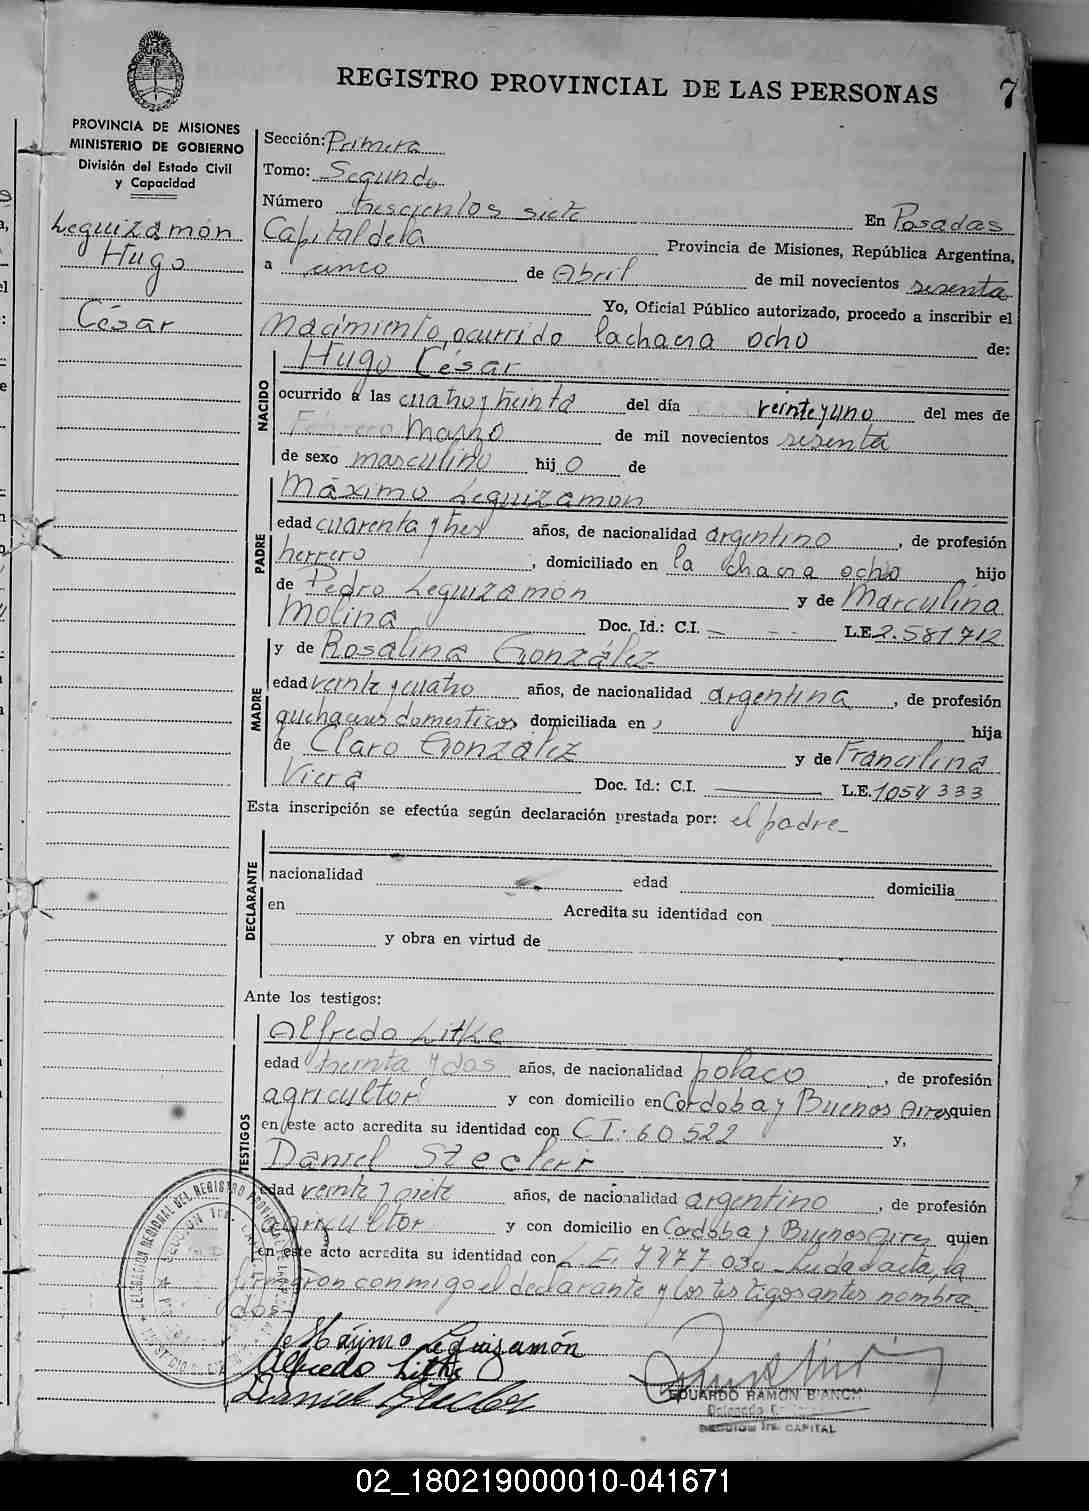 REGISTRO PROVINCIAL DE LAS PERSONAS
7
PROVINCIA DE MISIONES
MINISTERIO DE GOBIERNO
División del Estado Civil
y Capacidad
Leguizamón
Hugo
César
Sección: Primera
Tomo: Segundo
Número trescientos siete En Posadas
Capital de la Provincia de Misiones, República Argentina,
a cinco de Abril de mil novecientos sesenta
Yo, Oficial Público autorizado, procedo a inscribir el
Nacimiento, ocurrido la chacra ocho de:
NACIDO
Hugo César
ocurrido a las cuatro y treinta del día veinte y uno del mes de
Febrero Marzo de mil novecientos sesenta
de sexo masculino hijo de
PADRE
Máximo Leguizamón
edad cuarenta y tres años, de nacionalidad argentino, de profesión
herrero, domiciliado en la chacra ocho hijo
de Pedro Leguizamón y de Marculina
Molina Doc. Id.: C.I. — L.E. 2.581.712
y de Rosalina González
MADRE
edad veinte y cuatro años, de nacionalidad argentina, de profesión
quehaceres domesticos domiciliada en , hija
de Claro González y de Francilina
Viera Doc. Id.: C.I. — L.E. 1054333
Esta inscripción se efectúa según declaración prestada por: el padre_
DECLARANTE
nacionalidad edad domicilia
en Acredita su identidad con
y obra en virtud de
Ante los testigos:
TESTIGOS
Alfredo Litke
edad treinta y dos años, de nacionalidad polaco, de profesión
agricultor y con domicilio en Cordoba y Buenos Aires quien
en este acto acredita su identidad con C.I. 60522 y,
Daniel
edad veinte y siete años, de nacionalidad argentino, de profesión
agricultor y con domicilio en Cordoba y Buenos Aires quien
en este acto acredita su identidad con L.E. 7477.030_ Leida el acta, la
firmaron conmigo el declarante y los testigos antes nombra
dos_
Máximo Leguizamón
Alfredo Litke
Daniel
EDUARDO RAMON BIANCHI
SECCION 1ra. CAPITAL
02_180219000010-041671